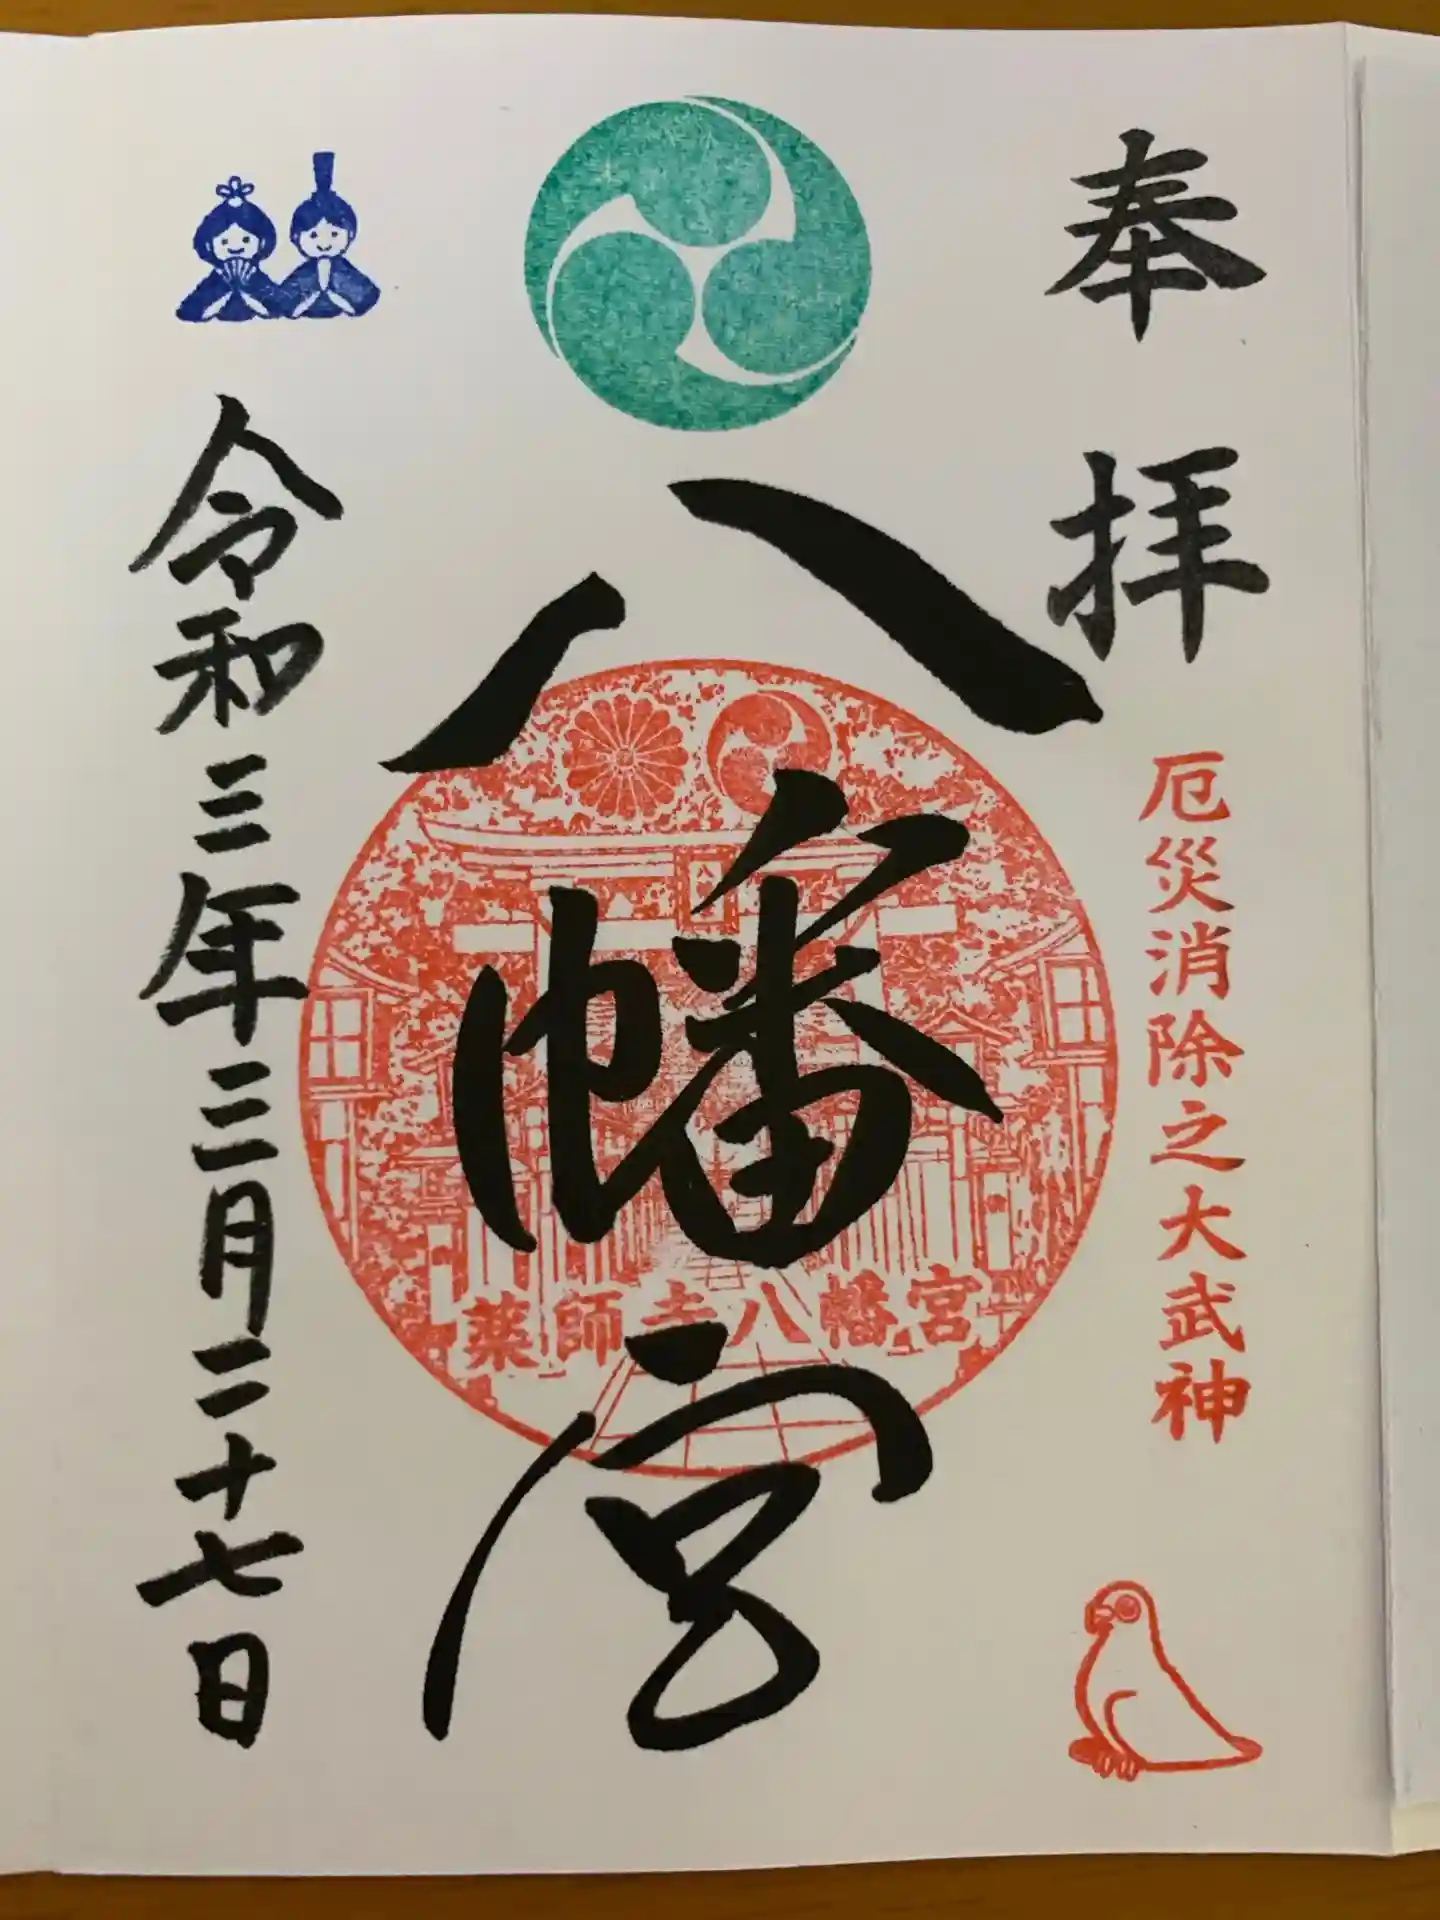 奉拝
厄災消除之大武神
八幡宮
薬師寺八幡宮
令和三年三月二十七日